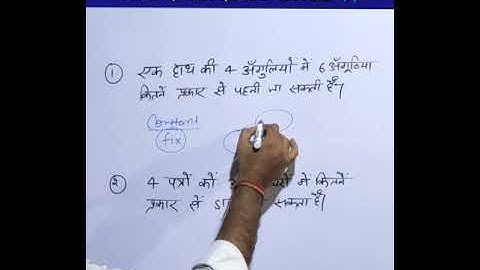 ① एक हाथ की 4 अँगुलियों में 6 अँगूठियां
कितनें प्रकार से पहनी जा सकती हैं?
Constant
fix
② 4 पत्रों कों 3 में कितनें
प्रकार सें सकता हैं?